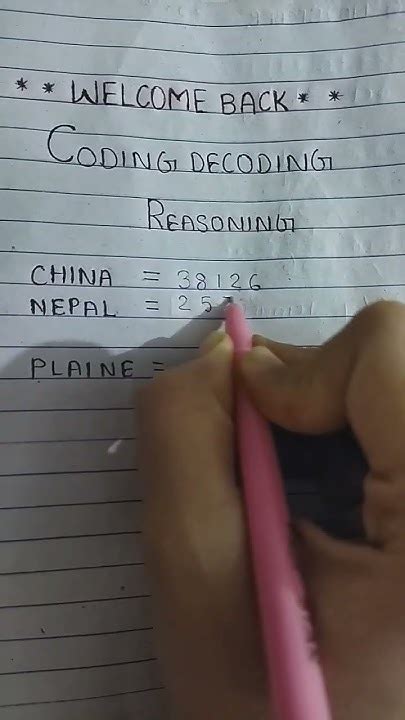 * * WELCOME BACK * *
CODING DECODING
REASONING
CHINA = 38126
NEPAL = 25
PLAINE =